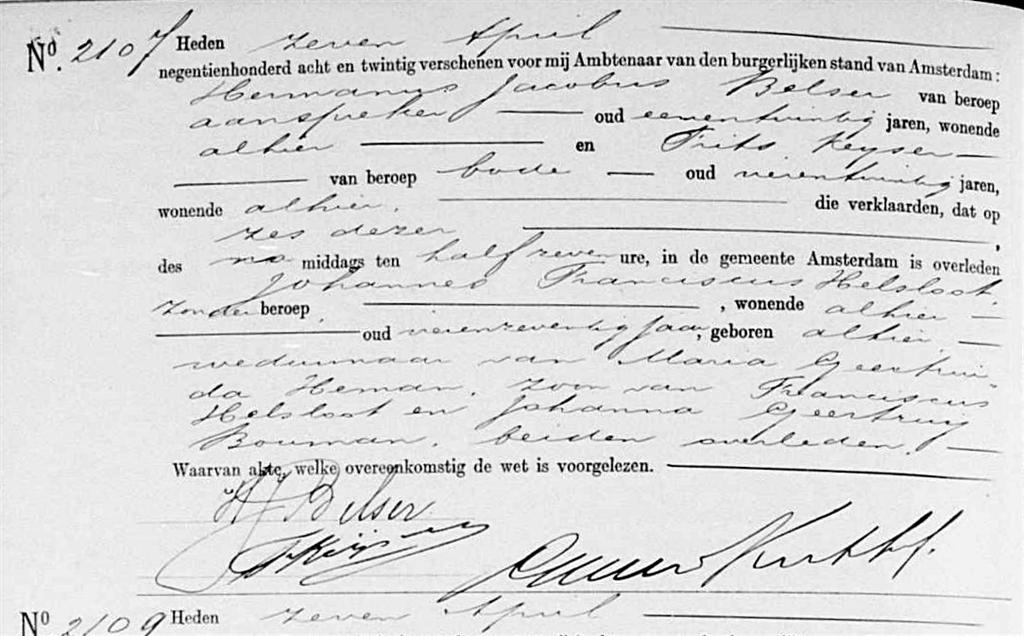 No. 2107 Heden zeven April
negentienhonderd acht en twintig verschenen voor mij Ambtenaar van den burgerlijken stand van Amsterdam:
Hermanus Jacobus Belser van beroep
aanspreker oud eenentwintig jaren, wonende
alhier en Frits Keyser
van beroep bode oud vierentwintig jaren,
wonende alhier. die verklaarden, dat op
zes dezer,
des na middags ten half zeven ure, in de gemeente Amsterdam is overleden
Johannes Franciscus Helsloot,
zonder beroep, wonende alhier
oud vierenzeventig jaar, geboren alhier,
weduwnaar van Maria Geertrui-
da Heman, zoon van Franciscus
Helsloot en Johanna Geertruij
Bouman, beiden overleden.
Waarvan akte, welke overeenkomstig de wet is voorgelezen.
HJ Belser
FrKeijser
No 2109 Heden zeven April